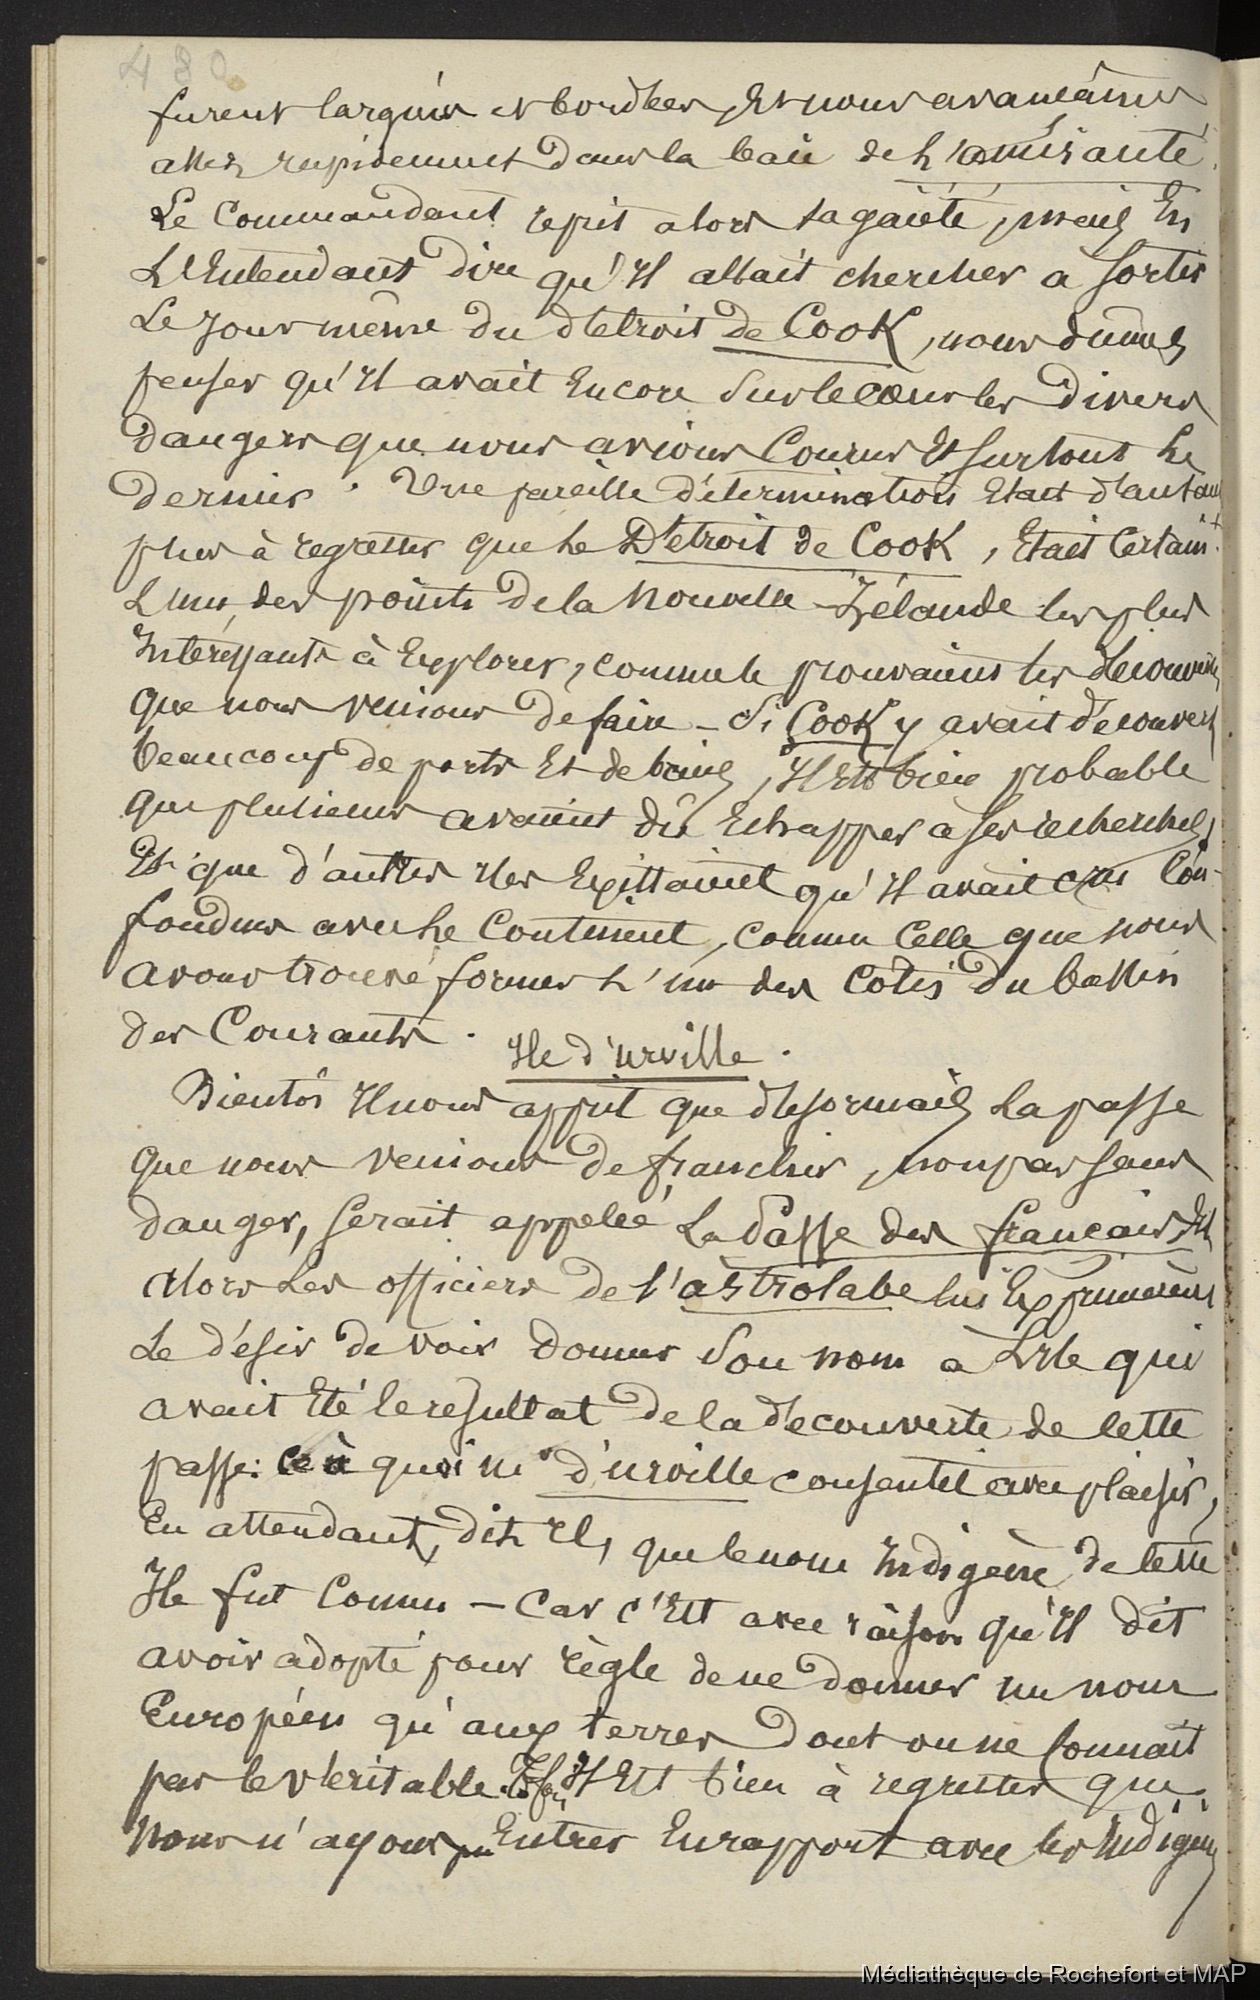 480
furent larguées et bordées, Et nous avançâmes
assez rapidement dans la baie de L'amirauté.
Le Commandant reprit alors sa gaieté, mais En
L'Entendant dire qu'Il allait chercher à sortir
Le jour même du détroit de Cook, nous dûmes
penser qu'Il avait Encore sur le cœur les divers
dangers que nous avions Courus Et surtout Le
dernier. Une pareille détermination Etait d'autant
plus à regretter que Le Détroit de Cook, Etait Certaint
L'un des points de la nouvelle-Zélande les plus
Intéressants à Explorer, comme le prouvaient les découvertes
que nous venions de faire - Si Cook y avait découvert
beaucoup de ports Et de baies, Il Est bien probable
que plusieurs avaient dû Echapper à ses recherches,
Et que d'autres Iles Existaient qu'Il avait crus Con-
fondues avec Le Continent, comme Celle que nous
avons trouvé former L'un des Côtés du bassin
des Courants.
Ile d'urville.
Bientôt Il nous apprit que désormais La passe
que nous venions de franchir, non pas sans
danger, serait appelée La Passe des français, Et
alors Les officiers de l'astrolabe lui Exprimèrent
Le désir de voir donner son nom à L'Ile qui
avait Eté le résultat de la découverte de cette
passe: ce à quoi Mr d'urville consentit avec plaisir,
En attendant, dit Il, que le nom Indigène de cette
Ile fut Connu - Car c'Est avec raison qu'Il dit
avoir adopté pour règle de ne donner un nom
Européen qu'aux terres dont on ne Connait
pas le véritable. Il Est bien à regretter que
nous n'ayons pu Entrer En rapport avec les Indigènes
Médiathèque de Rochefort et MAP